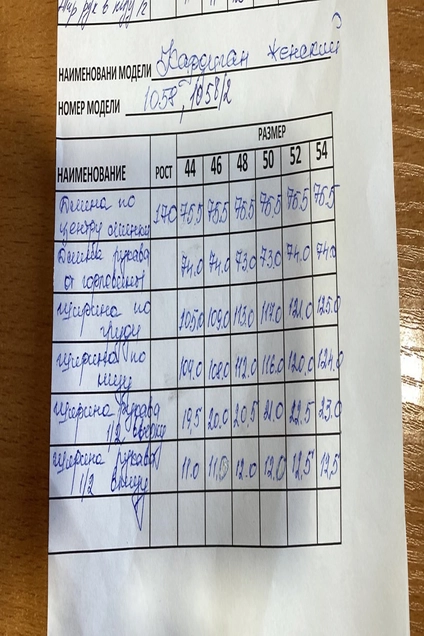 НАИМЕНОВАНИ МОДЕЛИ Кардиган женский
НОМЕР МОДЕЛИ 1058, 1058/2
РАЗМЕР
НАИМЕНОВАНИЕ РОСТ 44 46 48 50 52 54
Длина по
центру спинки 170 75,5 75,5 75,5 75,5 75,5 75,5
Длина рукава
от горловины 74.0 74.0 73.0 73.0 74.0 74.0
Ширина по
груди 105.0 109.0 113.0 117.0 121.0 125.0
Ширина по
низу 104.0 108.0 112.0 116.0 120.0 124.0
Ширина рукава
1/2 вверху 19,5 20.0 20,5 21.0 22,5 23.0
Ширина рукава
1/2 внизу 11.0 11,5 12.0 12,0 12,5 12,5